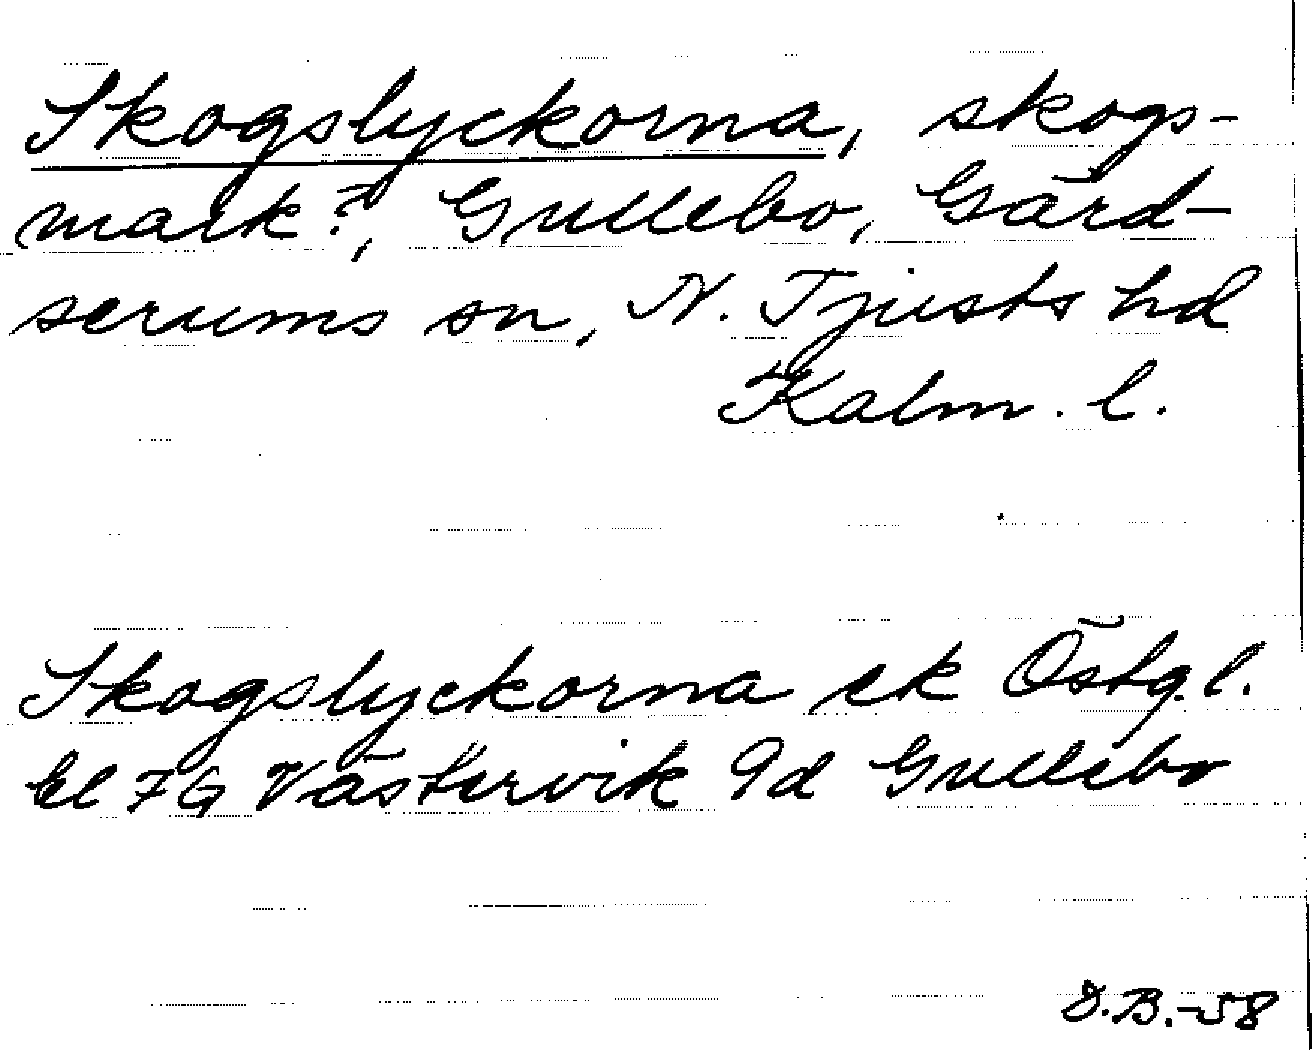 Skogslyckorna, skogs-
mark?, Gullebo, Gärd-
serums sn, N. Tjusts hd
Kalm. l.
Skogslyckorna ek Östg. l.
bl 7G Västervik 9d Gullebo
B.-58